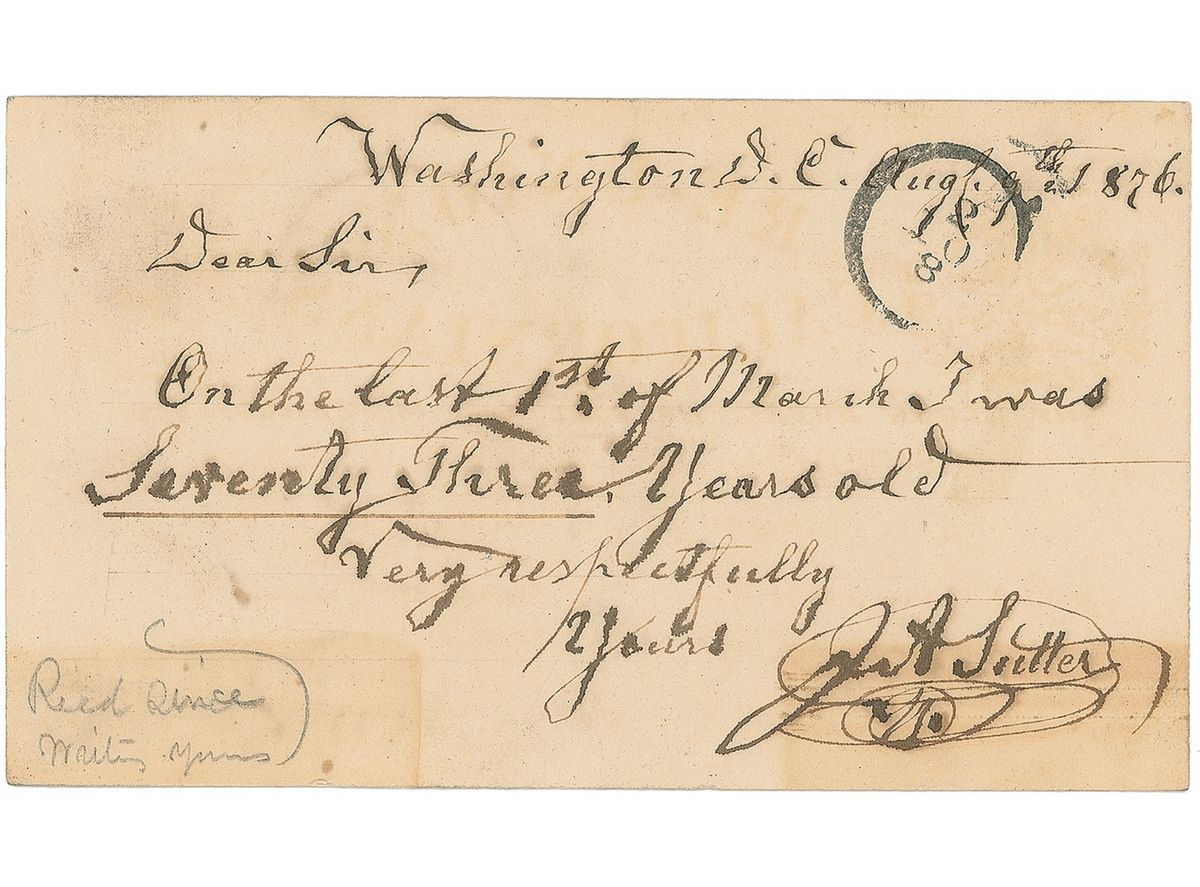 Washington D. C. Augt. 9th 1876.
Dear Sir,
On the last 1st. of March I was
Seventy Three, Years old
Very respectfully
Yours
J A Sutter
Recd since
Writing yours